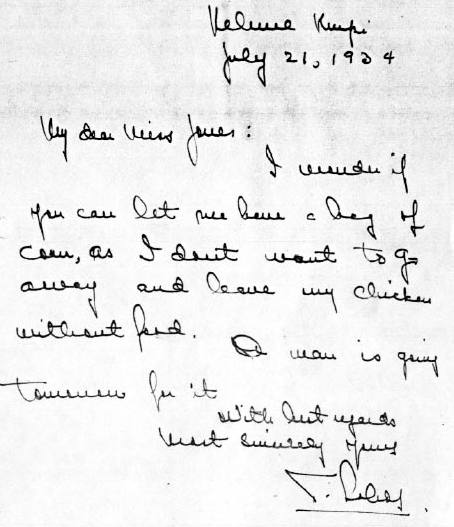 July 21, 1934
My dear Miss Jones:
I wonder if
you can let me have a bag of
corn, as I don't want to go
away and leave my chicken
without food. A man is going
tomorrow for it
With best regards
Most sincerely yours